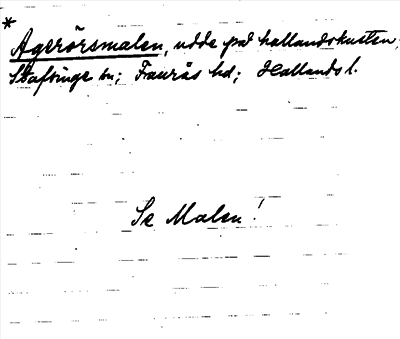 *
Agerörsmalen, udde på hallandskusten,
Stafsinge sn; Faurås hd; Hallands l.
Se Malen!